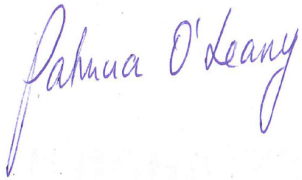 Patricia O'Leary